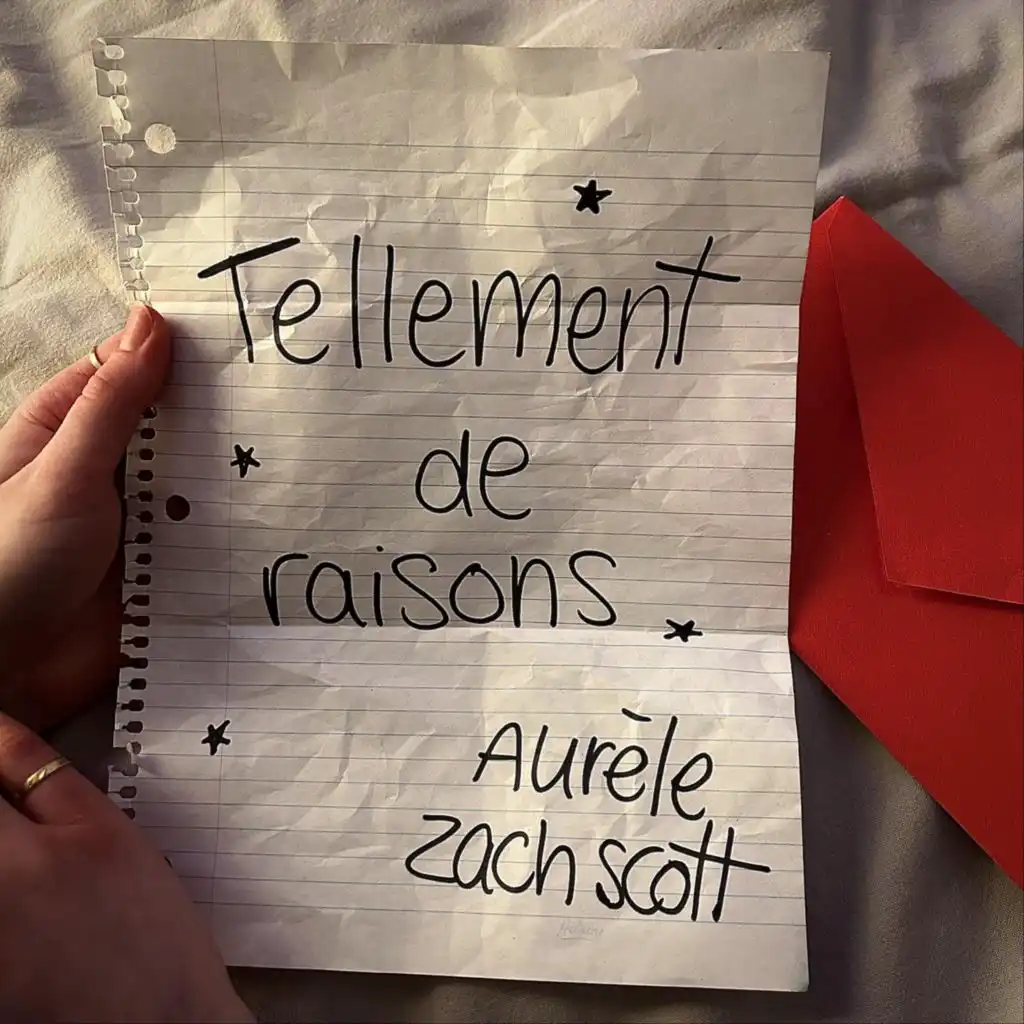 Tellement
de
raisons
Aurèle
zach scott